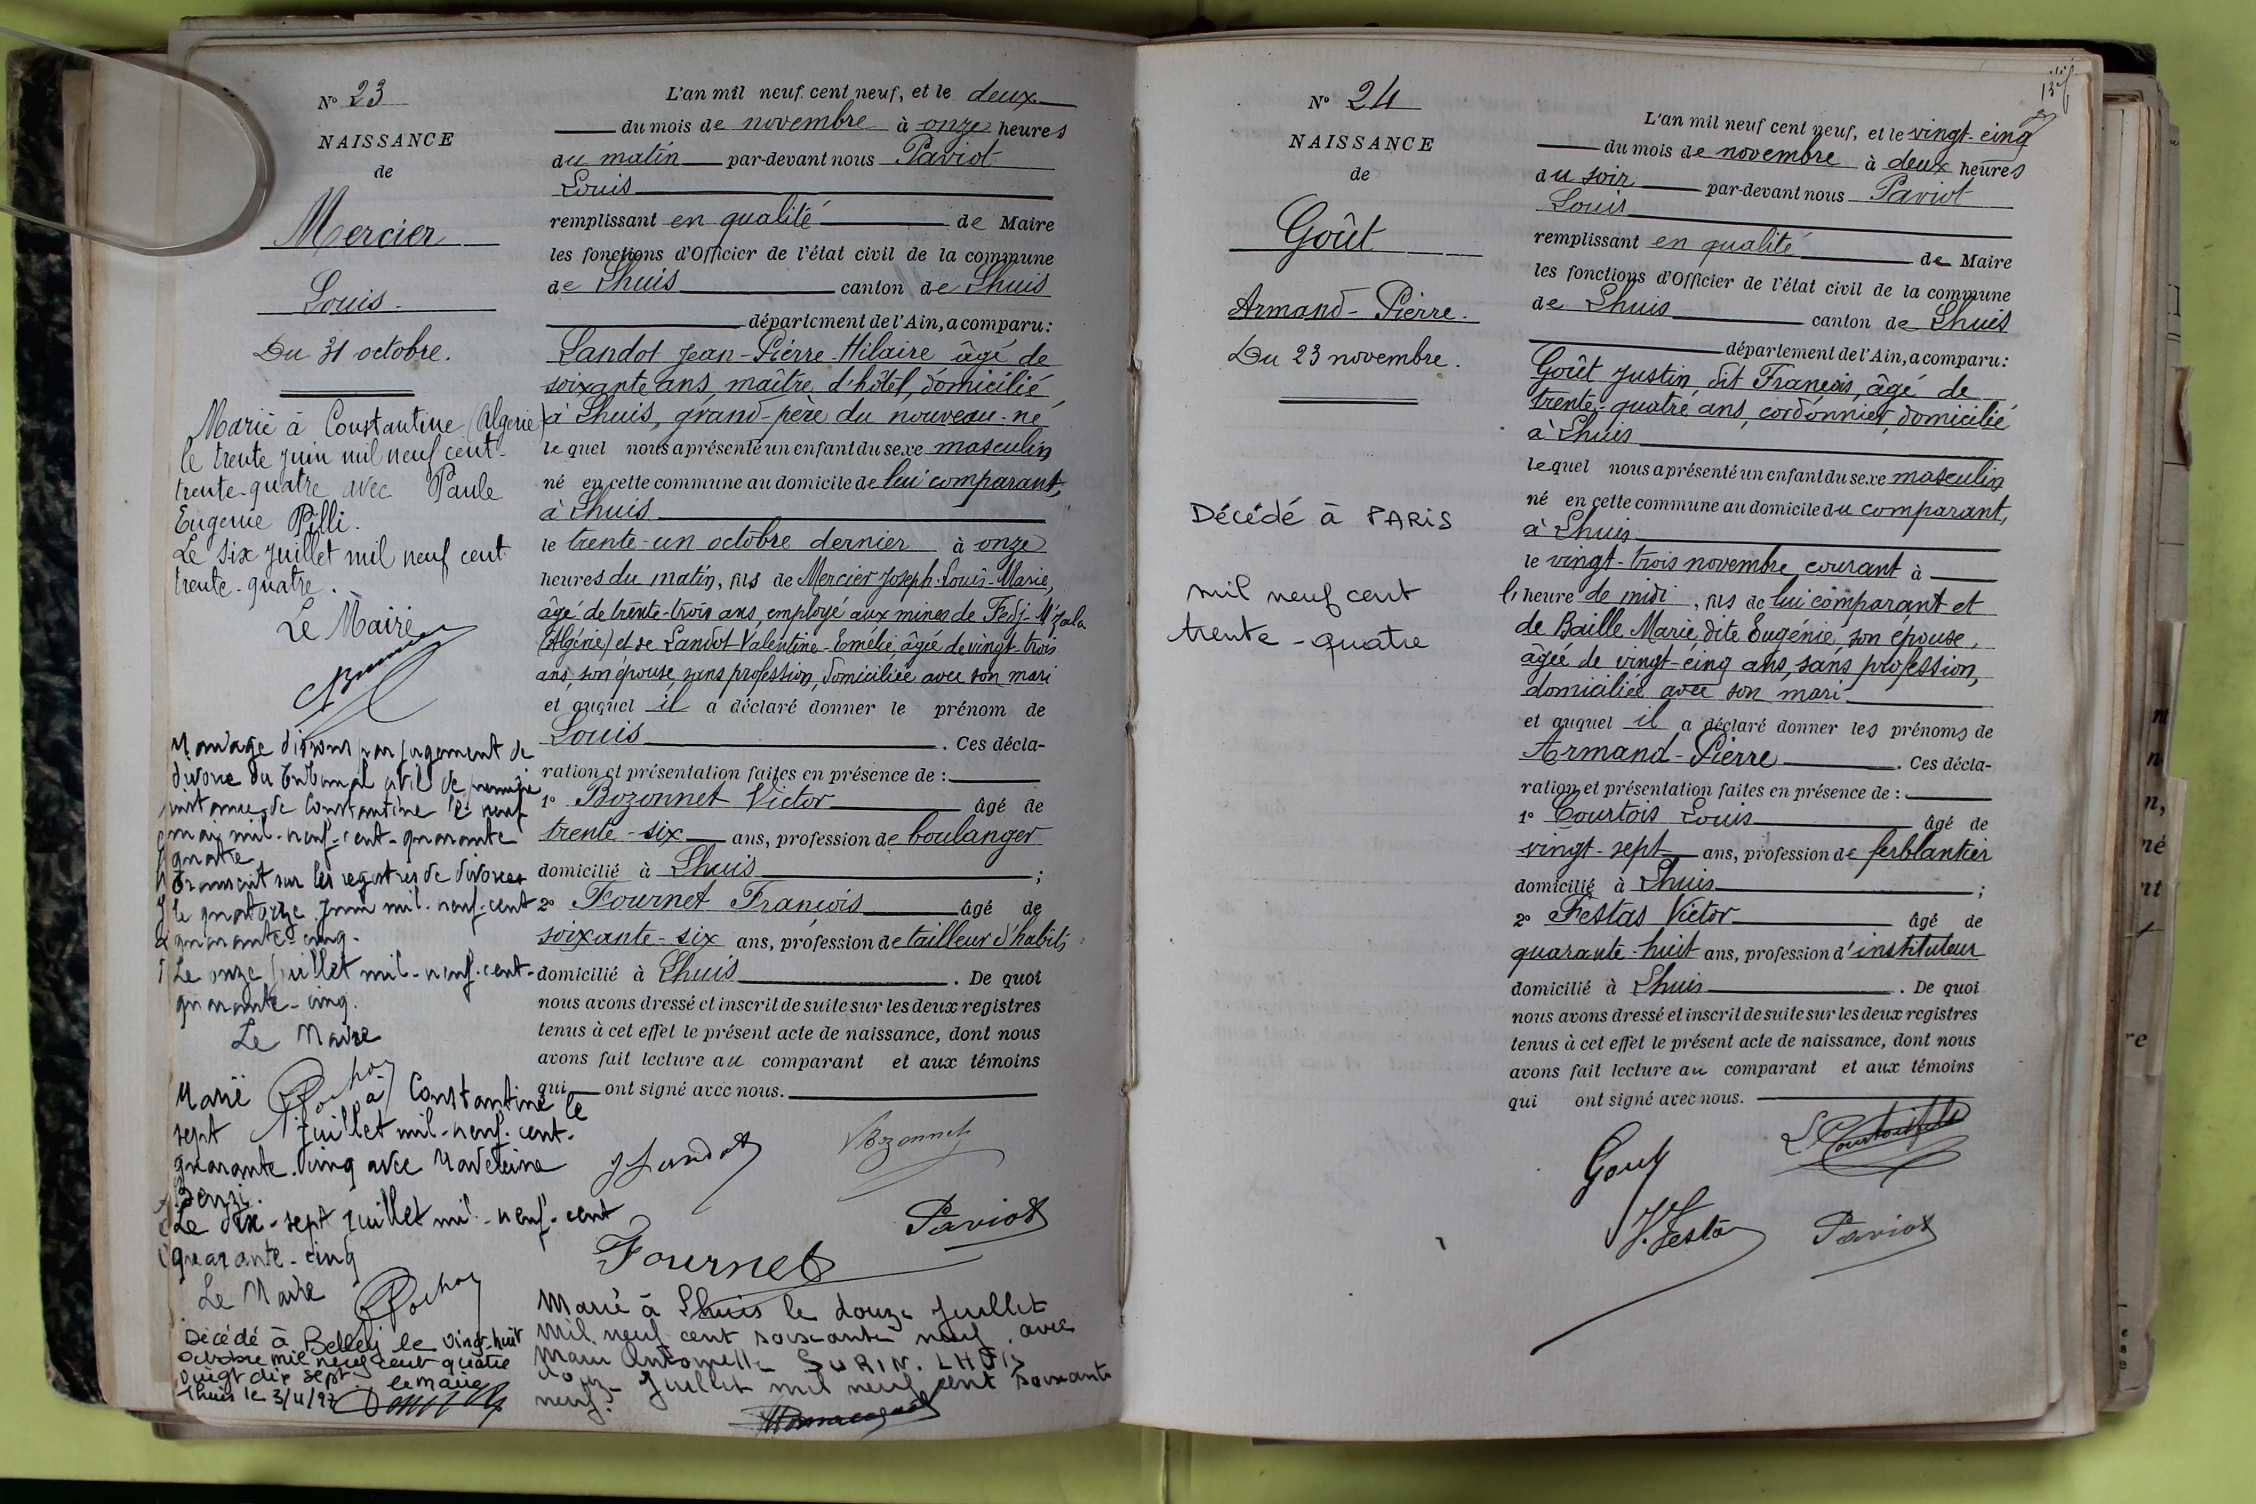 N° 23
NAISSANCE
de
Mercier
Louis.
Du 31 octobre.
Marié à Constantine (Algérie)
le trente juin mil neuf cent
trente-quatre avec Paule
Eugénie Pilli.
Le six juillet mil neuf cent
trente-quatre.
Le Maire
Mariage dissous par jugement de
divorce du tribunal civil de première
instance de Constantine le neuf
mai mil-neuf-cent-quarante
quatre
Transcrit sur les registres de divorces
le quatorze juin mil-neuf-cent
quarante-cinq.
Le onze juillet mil-neuf-cent-
quarante-cinq.
Le Maire
Marié à Constantine le
sept juillet mil-neuf-cent-
quarante-cinq avec Madeleine
Le dix-sept juillet mil-neuf-cent
quarante-cinq
Le Maire
Décédé à Belley le vingt-huit
octobre mil neuf cent quatre
vingt dix sept
le maire
Lhuis le 3/11/97
L'an mil neuf cent neuf, et le deux
du mois de novembre à onze heures
du matin par-devant nous Paviot
Louis
remplissant en qualité de Maire
les fonctions d'Officier de l'état civil de la commune
de Lhuis canton de Lhuis
département de l'Ain, a comparu:
Landot Jean-Pierre-Hilaire âgé de
soixante ans, maître d'hôtel, domicilié
à Lhuis, grand-père du nouveau-né
lequel nous a présenté un enfant du sexe masculin
né en cette commune au domicile de lui comparant,
à Lhuis
le trente-un octobre dernier à onze
heures du matin, fils de Mercier Joseph-Louis-Marie,
âgé de trente-trois ans, employé aux mines de Fedj-M'zala
(Algérie) et de Landot Valentine-Emélie, âgée de vingt-trois
ans, son épouse, sans profession, domiciliée avec son mari
et auquel il a déclaré donner le prénom de
Louis. Ces décla-
ration et présentation faites en présence de :
1° Bozonnet Victor âgé de
trente-six ans, profession de boulanger
domicilié à Lhuis ;
2° Fournet François âgé de
soixante-six ans, profession de tailleur d'habits
domicilié à Lhuis. De quoi
nous avons dressé et inscrit de suite sur les deux registres
tenus à cet effet le présent acte de naissance, dont nous
avons fait lecture au comparant et aux témoins
qui ont signé avec nous.
J Landot
VBozonnet
Paviot
Fournet
Marié à Lhuis le douze juillet
mil neuf cent soixante neuf avec
Marie Antoinette SURIN. LHUIS
douze juillet mil neuf cent soixante
neuf.
N° 24
NAISSANCE
de
Goût
Armand-Pierre.
Du 23 novembre.
Décédé à PARIS
mil neuf cent
trente-quatre
L'an mil neuf cent neuf, et le vingt-cinq
du mois de novembre à deux heures
du soir par-devant nous Paviot
Louis
remplissant en qualité de Maire
les fonctions d'Officier de l'état civil de la commune
de Lhuis canton de Lhuis
département de l'Ain, a comparu:
Goût Justin, dit François, âgé de
trente-quatre ans, cordonnier, domicilié
à Lhuis
lequel nous a présenté un enfant du sexe masculin
né en cette commune au domicile du comparant,
à Lhuis
le vingt-trois novembre courant à
l'heure de midi, fils de lui comparant et
de Baille Marie, dite Eugénie, son épouse,
âgée de vingt-cinq ans, sans profession,
domiciliée avec son mari
et auquel il a déclaré donner les prénoms de
Armand-Pierre. Ces décla-
ration et présentation faites en présence de :
1° Courtois Louis âgé de
vingt-sept ans, profession de ferblantier
domicilié à Lhuis ;
2° Festas Victor âgé de
quarante-huit ans, profession d'instituteur
domicilié à Lhuis. De quoi
nous avons dressé et inscrit de suite sur les deux registres
tenus à cet effet le présent acte de naissance, dont nous
avons fait lecture au comparant et aux témoins
qui ont signé avec nous.
Gout
V. Festas
Paviot